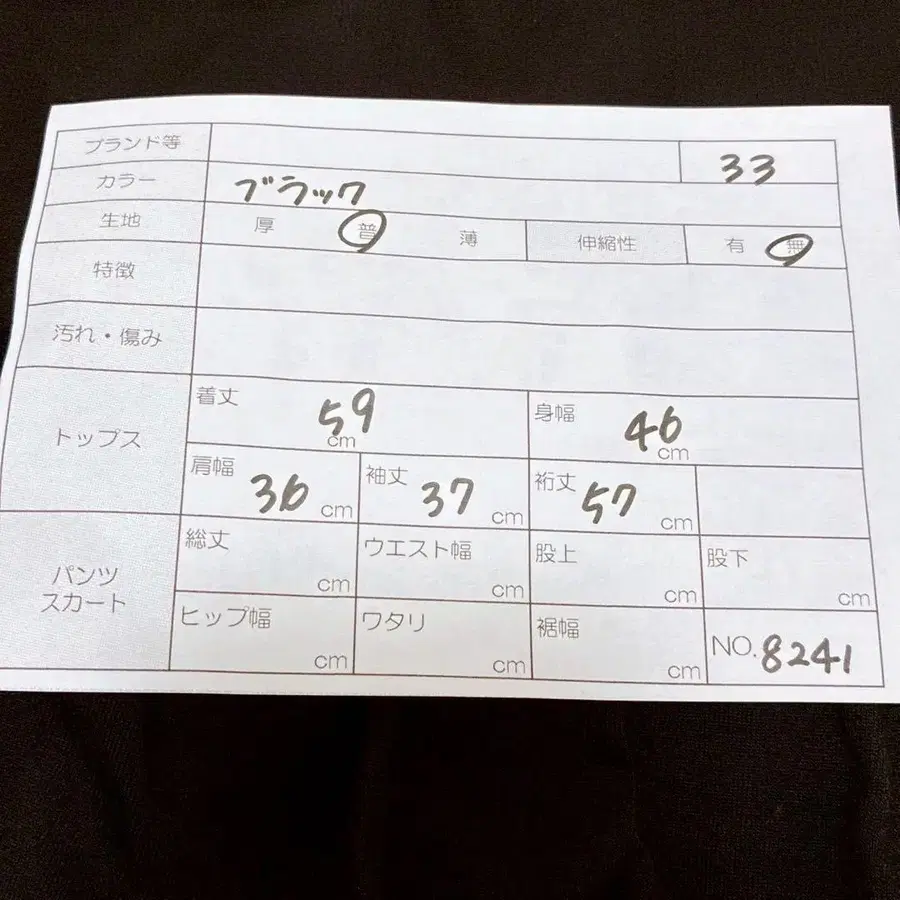 ブランド等 33
カラー ブラック
生地 厚 普 薄 伸縮性 有 無
特徴
汚れ・傷み
トップス
着丈 59 cm 身幅 46 cm
肩幅 36 cm 袖丈 37 cm 裄丈 57 cm
パンツ
スカート
総丈 cm ウエスト幅 cm 股上 cm 股下 cm
ヒップ幅 cm ワタリ cm 裾幅 cm NO. 8241